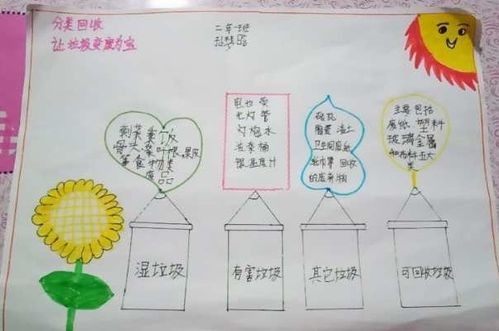 分类回收
让垃圾变废为宝
二年一班
剩菜剩饭
骨头菜叶果皮
等食物类
废品
电池 废
电灯管
灯泡水
油漆桶
银温度计
砖瓦
陶瓷 渣土
卫生间废纸
纸巾等 回收
的废弃物
主要包括
废纸 塑料
玻璃金属
和布料五大
类
湿垃圾
有害垃圾
其它垃圾
可回收垃圾